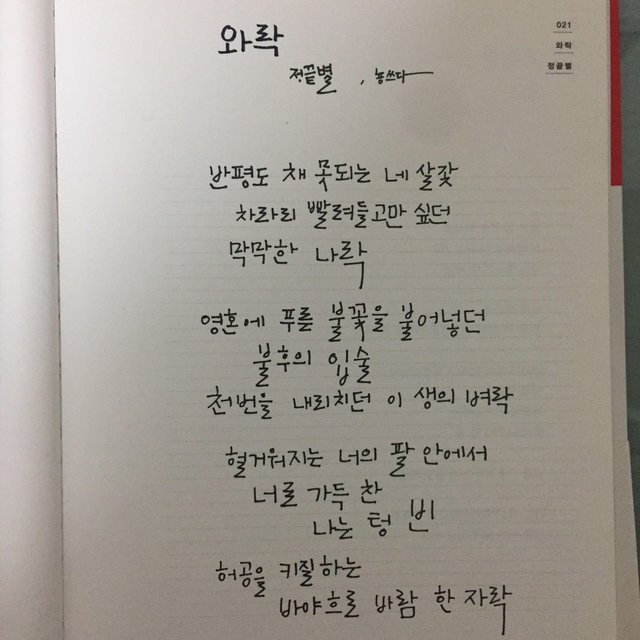 와락
정끝별, 농쓰다
021
와락
정끝별
반평도 채 못되는 네 살갗
차라리 빨려들고만 싶던
막막한 나락
영혼에 푸른 불꽃을 불어넣던
불후의 입술
천번을 내리치던 이 생의 벼락
헐거워지는 너의 팔 안에서
너로 가득 찬
나는 텅 빈
허공을 키질하는
바야흐로 바람 한 자락